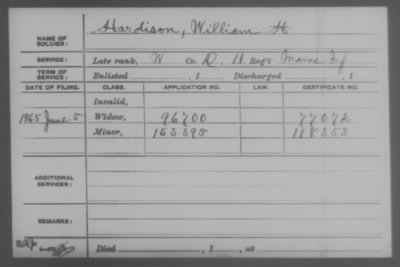 NAME OF SOLDIER: Hardison, William H
SERVICE: Late rank, Co. D, 11 Reg't Maine Inf
TERM OF SERVICE: Enlisted , 1 Discharged , 1
DATE OF FILING. CLASS. APPLICATION NO. LAW. CERTIFICATE NO.
Invalid,
1865 June 5 Widow, 96700 77072
Minor, 153395 118353
ADDITIONAL SERVICES:
REMARKS:
Died , 1 , at